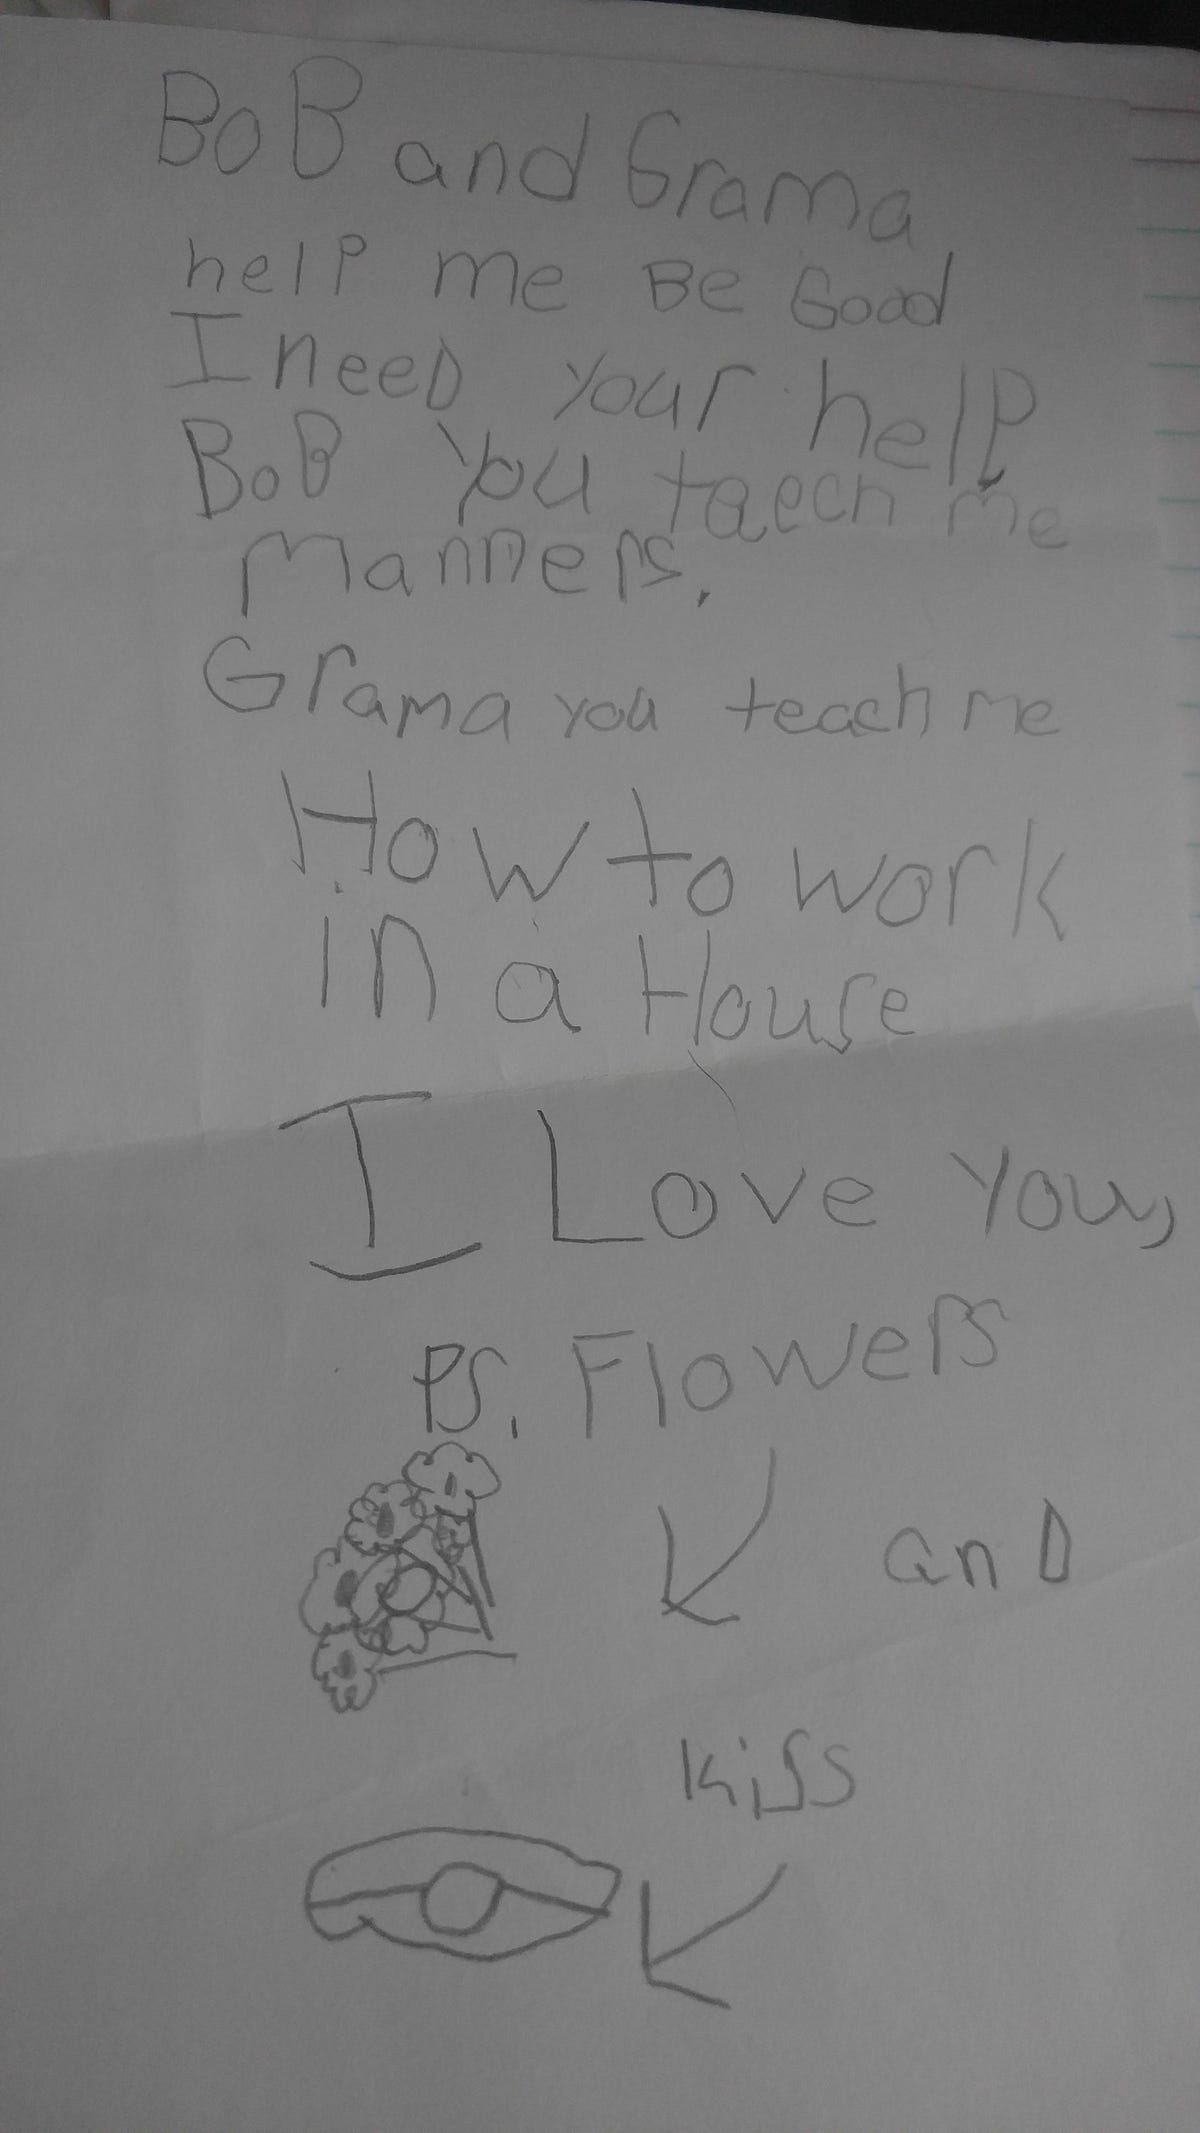 BoB and Grama
help me Be Good
I neeD your help
BoB you taech me
manners.
Grama you teach me
How to work
in a House
I Love You,
PS. Flowers
anD
kiss